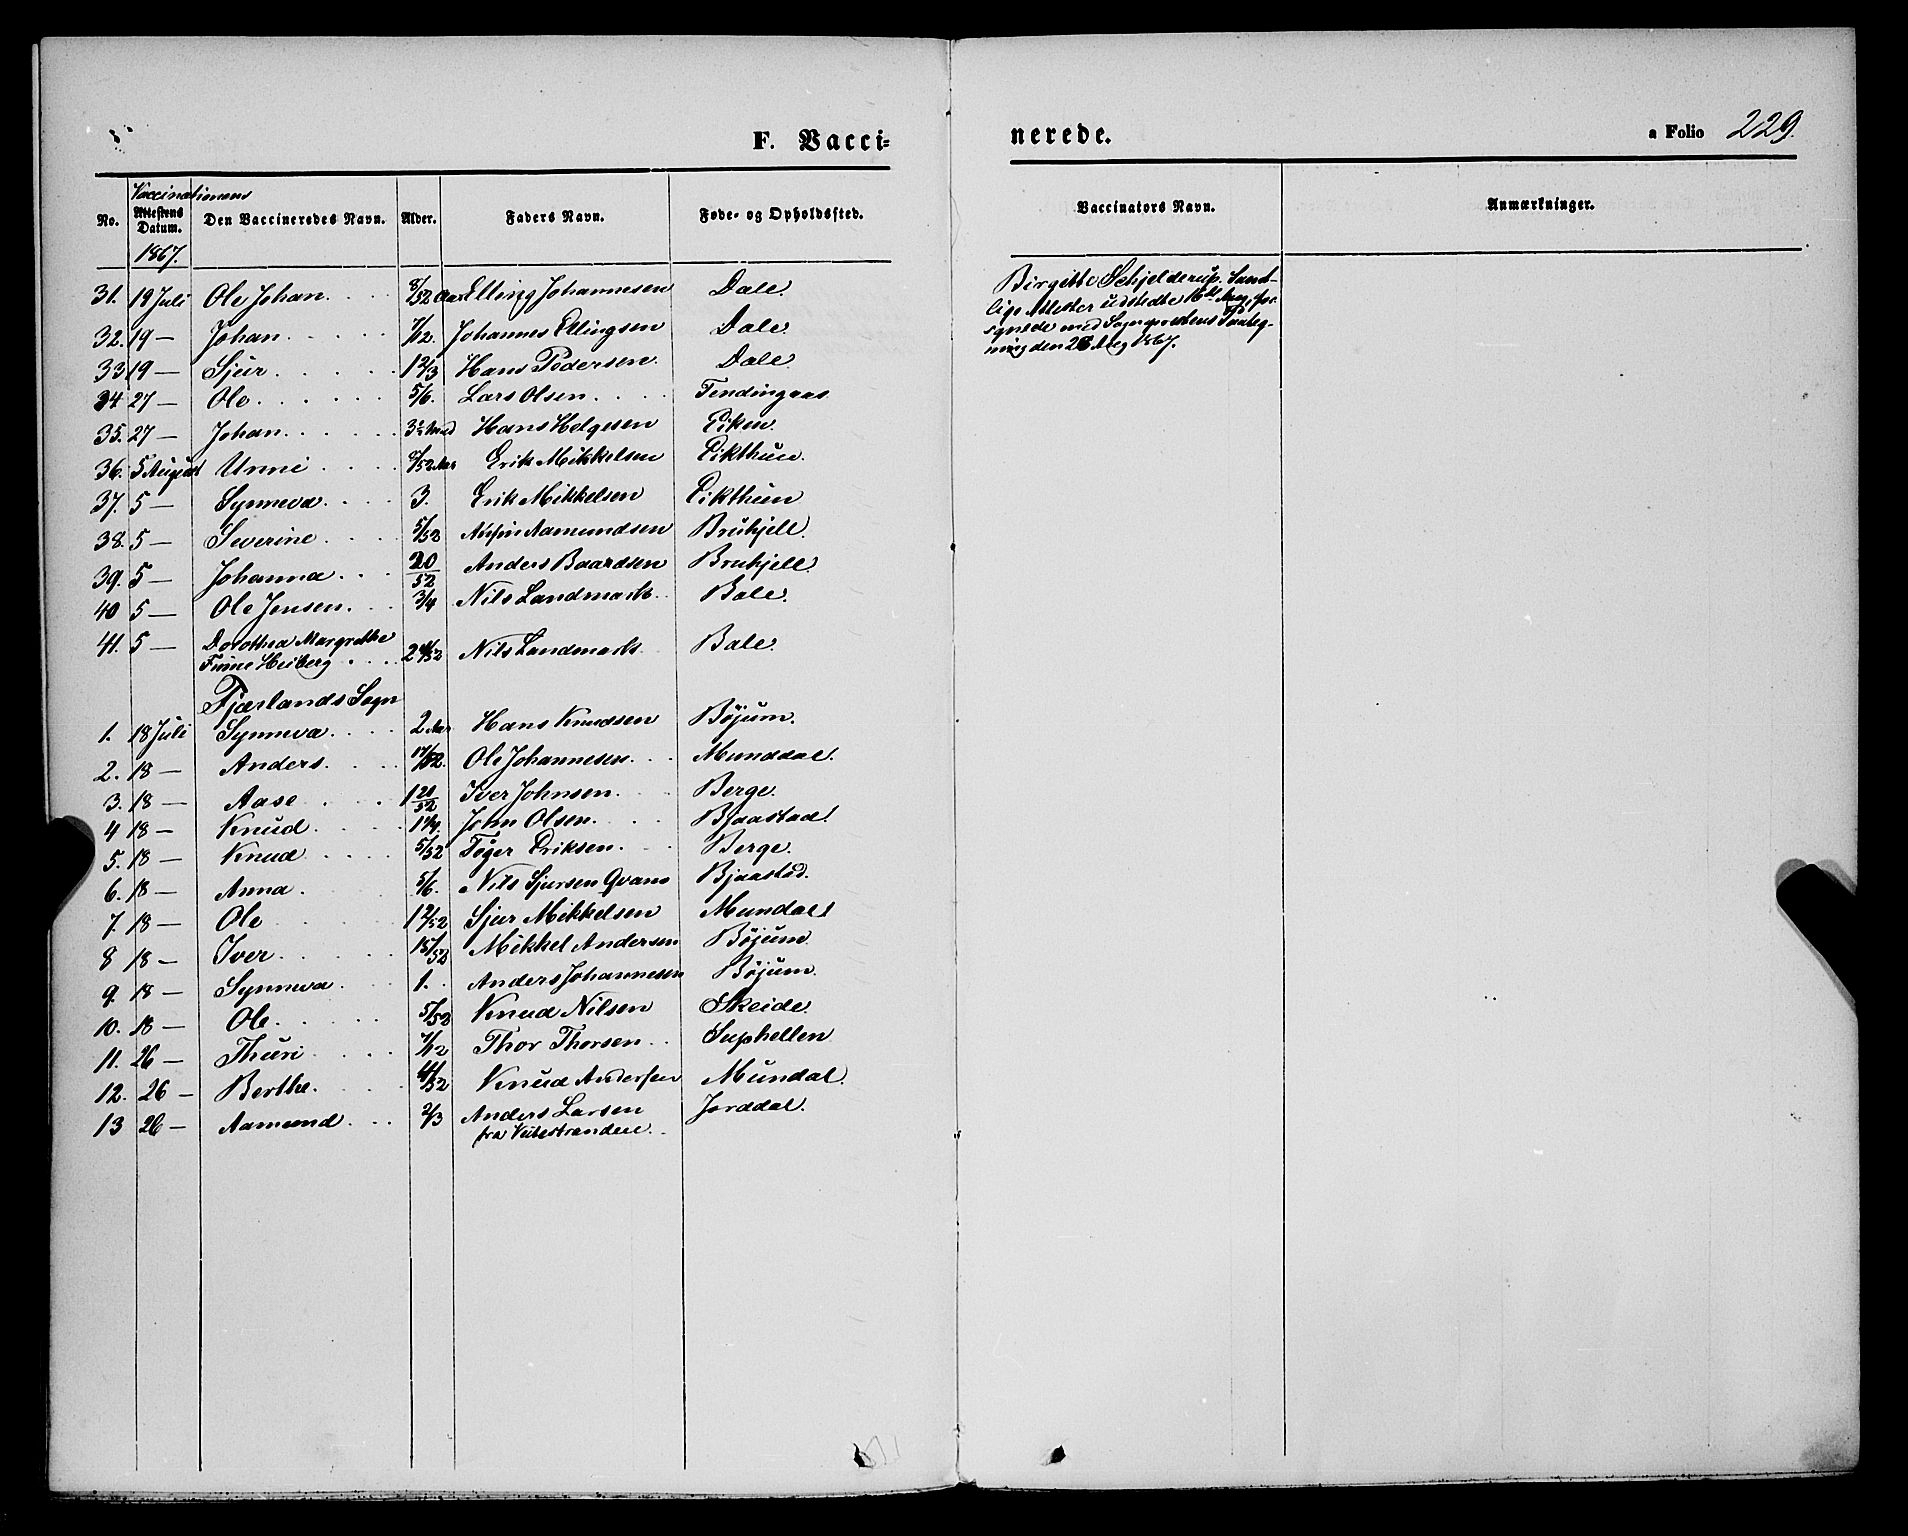 F. Vacci-
nerede.
a Folio 229.
Vaccinationens
No. Attestens Datum. Den Vaccineredes Navn. Alder. Faders Navn. Føde- og Opholdssted.
Vaccinators Navn. Anmærkninger.
1867.
31. 19 Juli Ole Johan 8/52 Aar Elling Johannesen Dale.
32. 19 — Johan 7/12. Johannes Ellingsen Dale.
33 19 — Sjur 1 2/3 Hans Pedersen Dale
34 27 — Ole 5/6. Lars Olsen
35. 27 — Johan Hans Helgesen Eiken.
36. 5 August Unni 8/52 Aar Erik Mikkelsen Eikthun.
37. 5 — Synneva 3. Erik Mikkelsen Eikthun
38. 5 — Severine 5/52 Aamundsen
39. 5 — Johanna 20/52 Anders Baardsen
40 5 — Ole Jensen 3/4 Nils Landmark Bale.
41. 5 — Dorothea Margrethe
Heiberg Nils Landmark Bale.
Fjærlands Sogn
1. 18 Juli Synneva 2 Aar Hans Knudsen Bøjum.
2. 18 — Anders 17/52. Ole Johannesen Munddal.
3. 18 — Aase 1 20/52 Iver Johnsen Berge.
4 18 — Knud 1 1/4. John Olsen Bjaastad.
5. 18 — Knud 5/52 Tøger Eriksen Berge.
6. 18 — Anna 5/6. Nils Sjursen Qvam Bjaastad.
7. 18 — Ole Sjur Mikkelsen Mundal
8 18 — Iver 15/52 Mikkel Andersen Bøjum
9. 18 — Synneva 1. Anders Johannesen Bøjum.
10. 18 — Ole 5/52 Knud Nilsen Skeide.
11. 26 — Thuri 7/12 Thor Thorsen Suphellen
12. 26 — Berthe Knud Andersen Mundal.
13 26 — Aamund 2/3 Anders Larsen Jorddal.
fra Vetlestranden
Birgitte Schjelderup. Samt-
lige Attester udstedte 16de Aug, for
synede med Sognepræstens Paateg-
ning den Aug 1867.